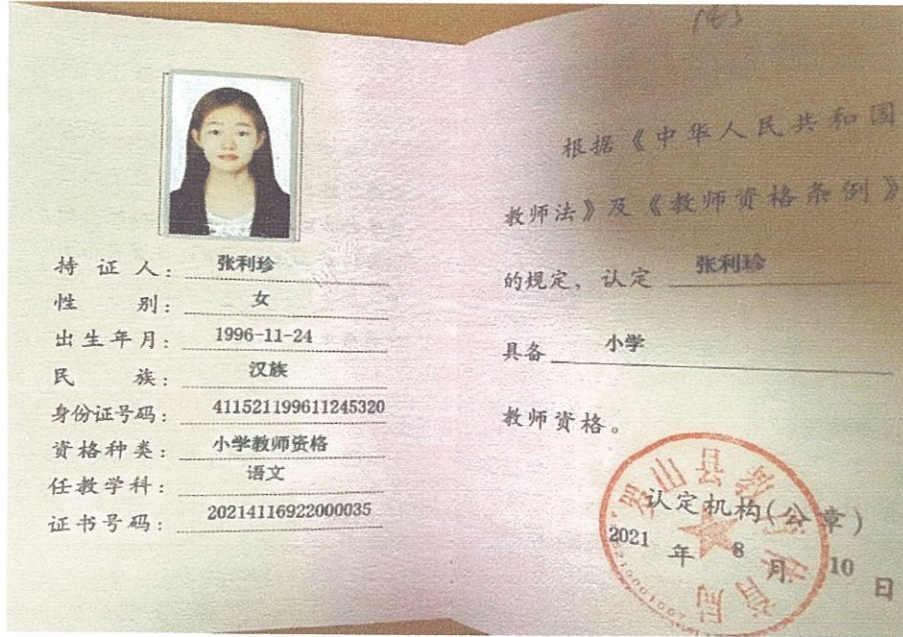 持证人：张利珍
性别：女
出生年月：1996-11-24
民族：汉族
身份证号码：411521199611245320
资格种类：小学教师资格
任教学科：语文
证书号码：20214116922000035
根据《中华人民共和国
教师法》及《教师资格条例》
的规定，认定 张利珍
具备 小学
教师资格。
认定机构(公章)
2021 年 8 月 10 日